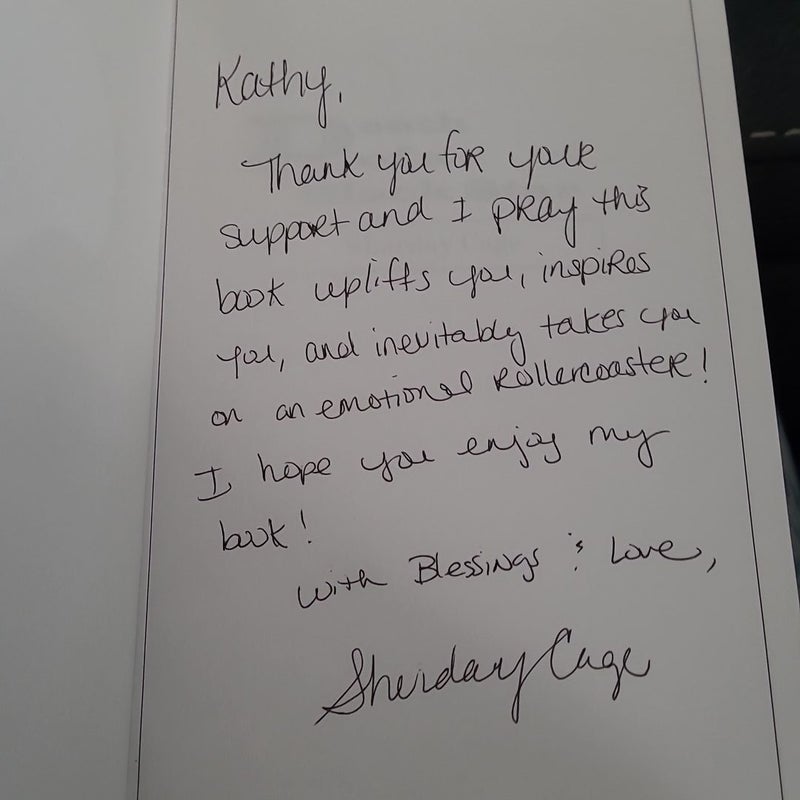 Kathy,
Thank you for your
support and I pray this
book uplifts you, inspires
you, and inevitably takes you
on an emotional rollercoaster!
I hope you enjoy my
book!
With Blessings & Love,
Sherday Cage